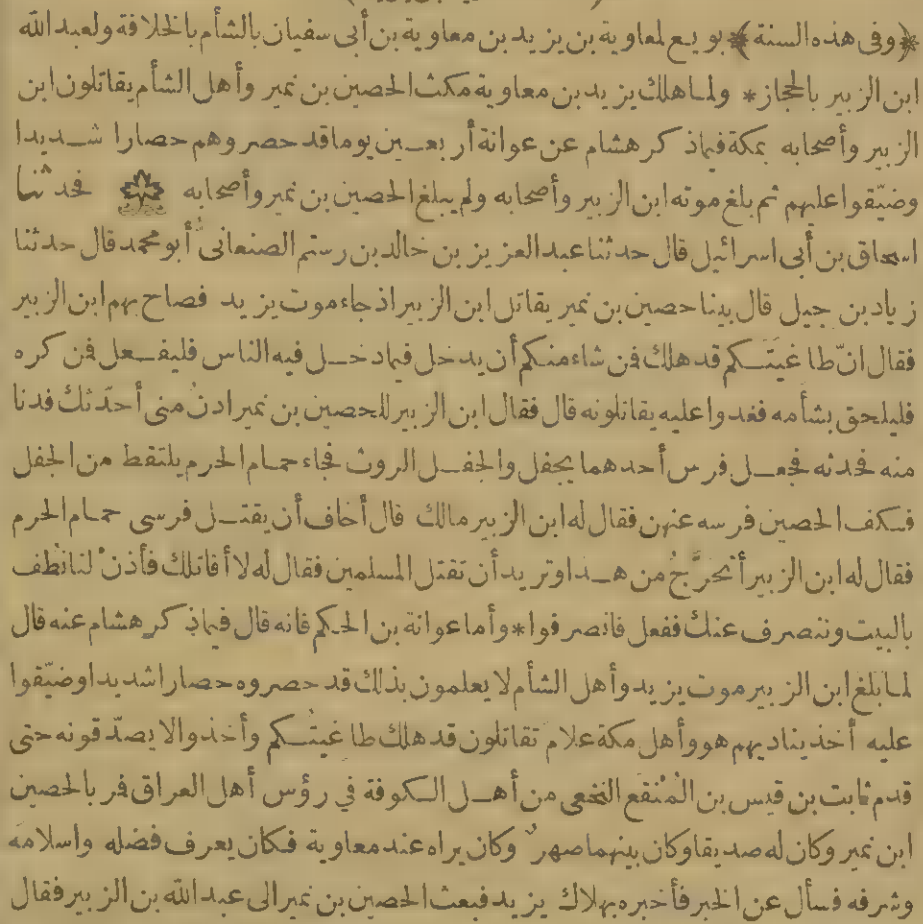 ﴿وفى هذه السنة﴾ بويع لمعاوية بن يزيد بن معاوية بن أبى سفيان بالشأم بالخلافة ولعبد الله
ابن الزبير بالحجاز * ولما هلك يزيد بن معاوية مكث الحصين بن نمير وأهل الشأم يقاتلون ابن
الزبير وأصحابه بمكة فيما ذكر هشام عن عوانة أربعين يوما قد حصروهم حصارا شديدا
وضيّقوا عليهم ثم بلغ موته ابن الزبير وأصحابه ولم يبلغ الحصين بن نمير وأصحابه فحدثنا
اسحاق بن أبى اسرائيل قال حدثنا عبد العزيز بن خالد بن رستم الصنعانىُّ أبو محمد قال حدثنا
زياد بن جيل قال بينا حصين بن نمير يقاتل ابن الزبير اذ جاء موت يزيد فصاح بهم ابن الزبير
فقال انّ طاغيَتَكم قد هلك فمن شاء منكم أن يدخل فيما دخل فيه الناس فليفعل فمن كره
فليلحق بشأمه فغدوا عليه يقاتلونه قال فقال ابن الزبير للحصين بن نمير ادنُ منى أحدّثك فدنا
منه فحدثه فجعل فرس أحدهما يجفل والجفل الروث فجاء حمام الحرم يلتقط من الجفل
فكف الحصين فرسه عنهن فقال له ابن الزبير مالك قال أخاف أن يقتل فرسى حمام الحرم
فقال له ابن الزبير أتحرَّجُ من هذا وتريد أن تقتل المسلمين فقال له لا أقاتلك فأذنْ لنا نطف
بالبيت وننصرف عنك ففعل فانصرفوا * وأما عوانة بن الحكم فانه قال فيما ذكر هشام عنه قال
لما بلغ ابن الزبير موت يزيد وأهل الشأم لا يعلمون بذلك قد حصروه حصارا شديدا وضيّقوا
عليه أخذ يناديهم هو وأهل مكة علامَ تقاتلون قد هلك طاغيتُكم وأخذوا لا يصدّقونه حتى
قدم ثابت بن قيس بن المُنْقَع النخعى من أهل الكوفة في رؤس أهل العراق فمر بالحصين
ابن نمير وكان له صديقا وكان بينهما صهرٌ وكان يراه عند معاوية فكان يعرف فضله واسلامه
وشرفه فسأل عن الخبر فأخبره بهلاك يزيد فبعث الحصين بن نمير الى عبد الله بن الزبير فقال